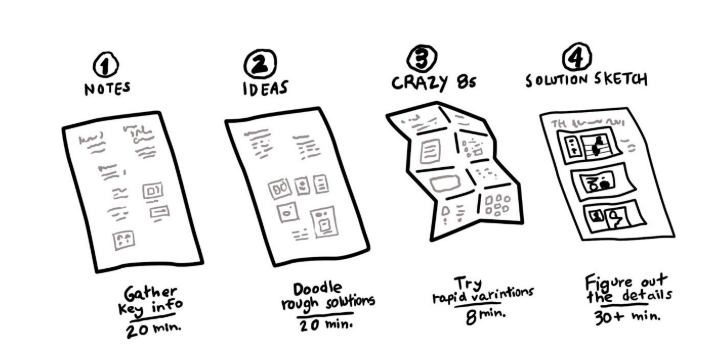 1
NOTES
Gather
key info
20 min.
2
IDEAS
Doodle
rough solutions
20 min.
3
CRAZY 8s
Try
rapid varintions
8 min.
4
SOLUTION SKETCH
Figure out
the details
30+ min.